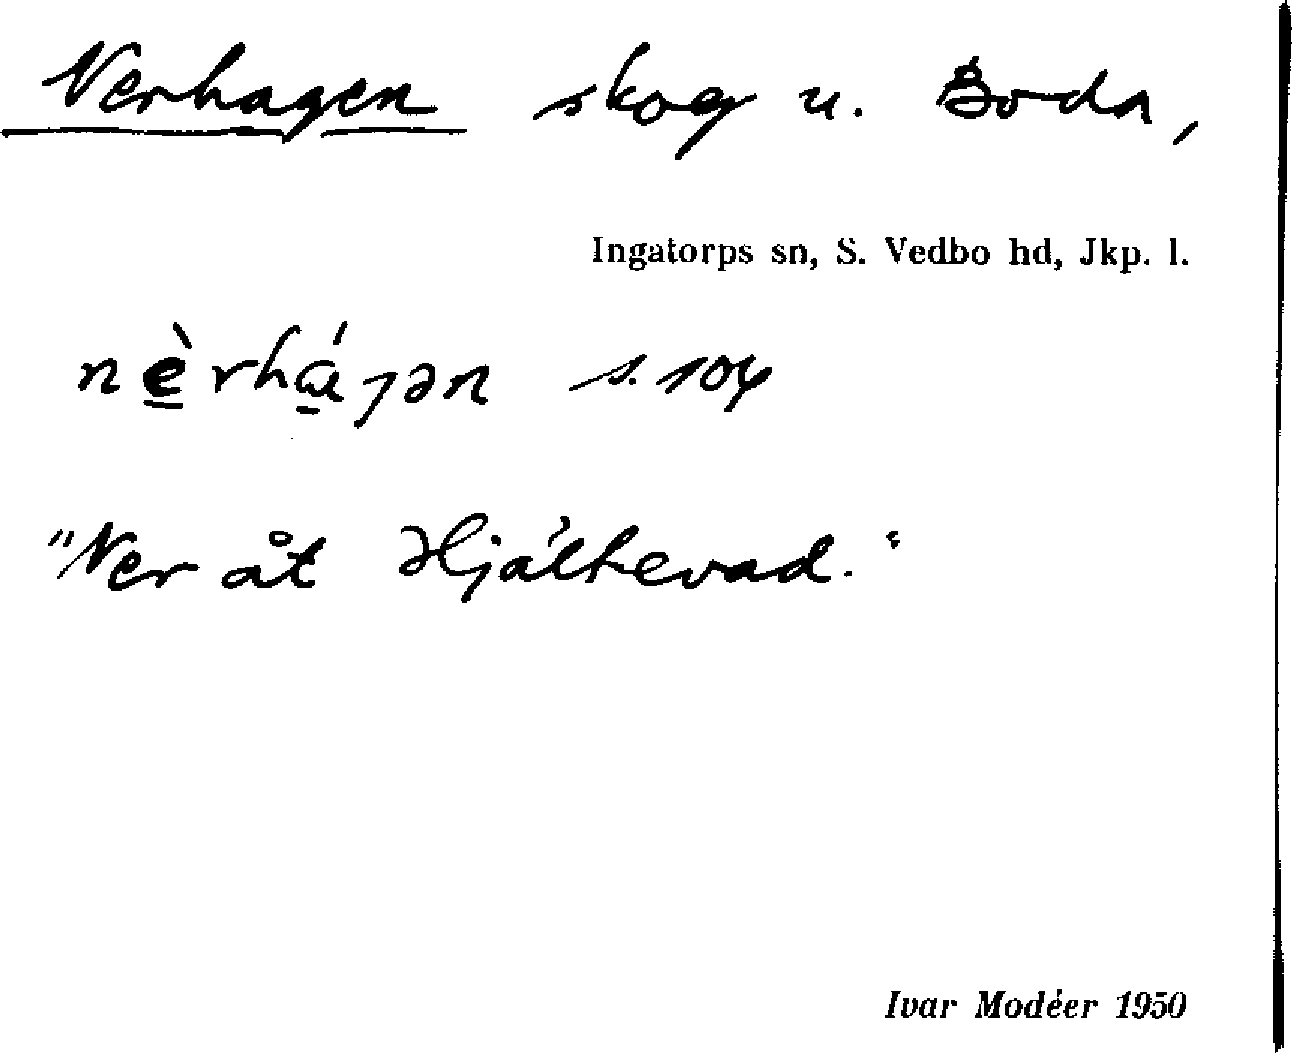 Nerhagen skog u. Boda,
Ingatorps sn, S. Vedbo hd, Jkp. l.
nè̱rhá̱ɡən s. 104
"Ner åt Hjältevad."
Ivar Modéer 1950